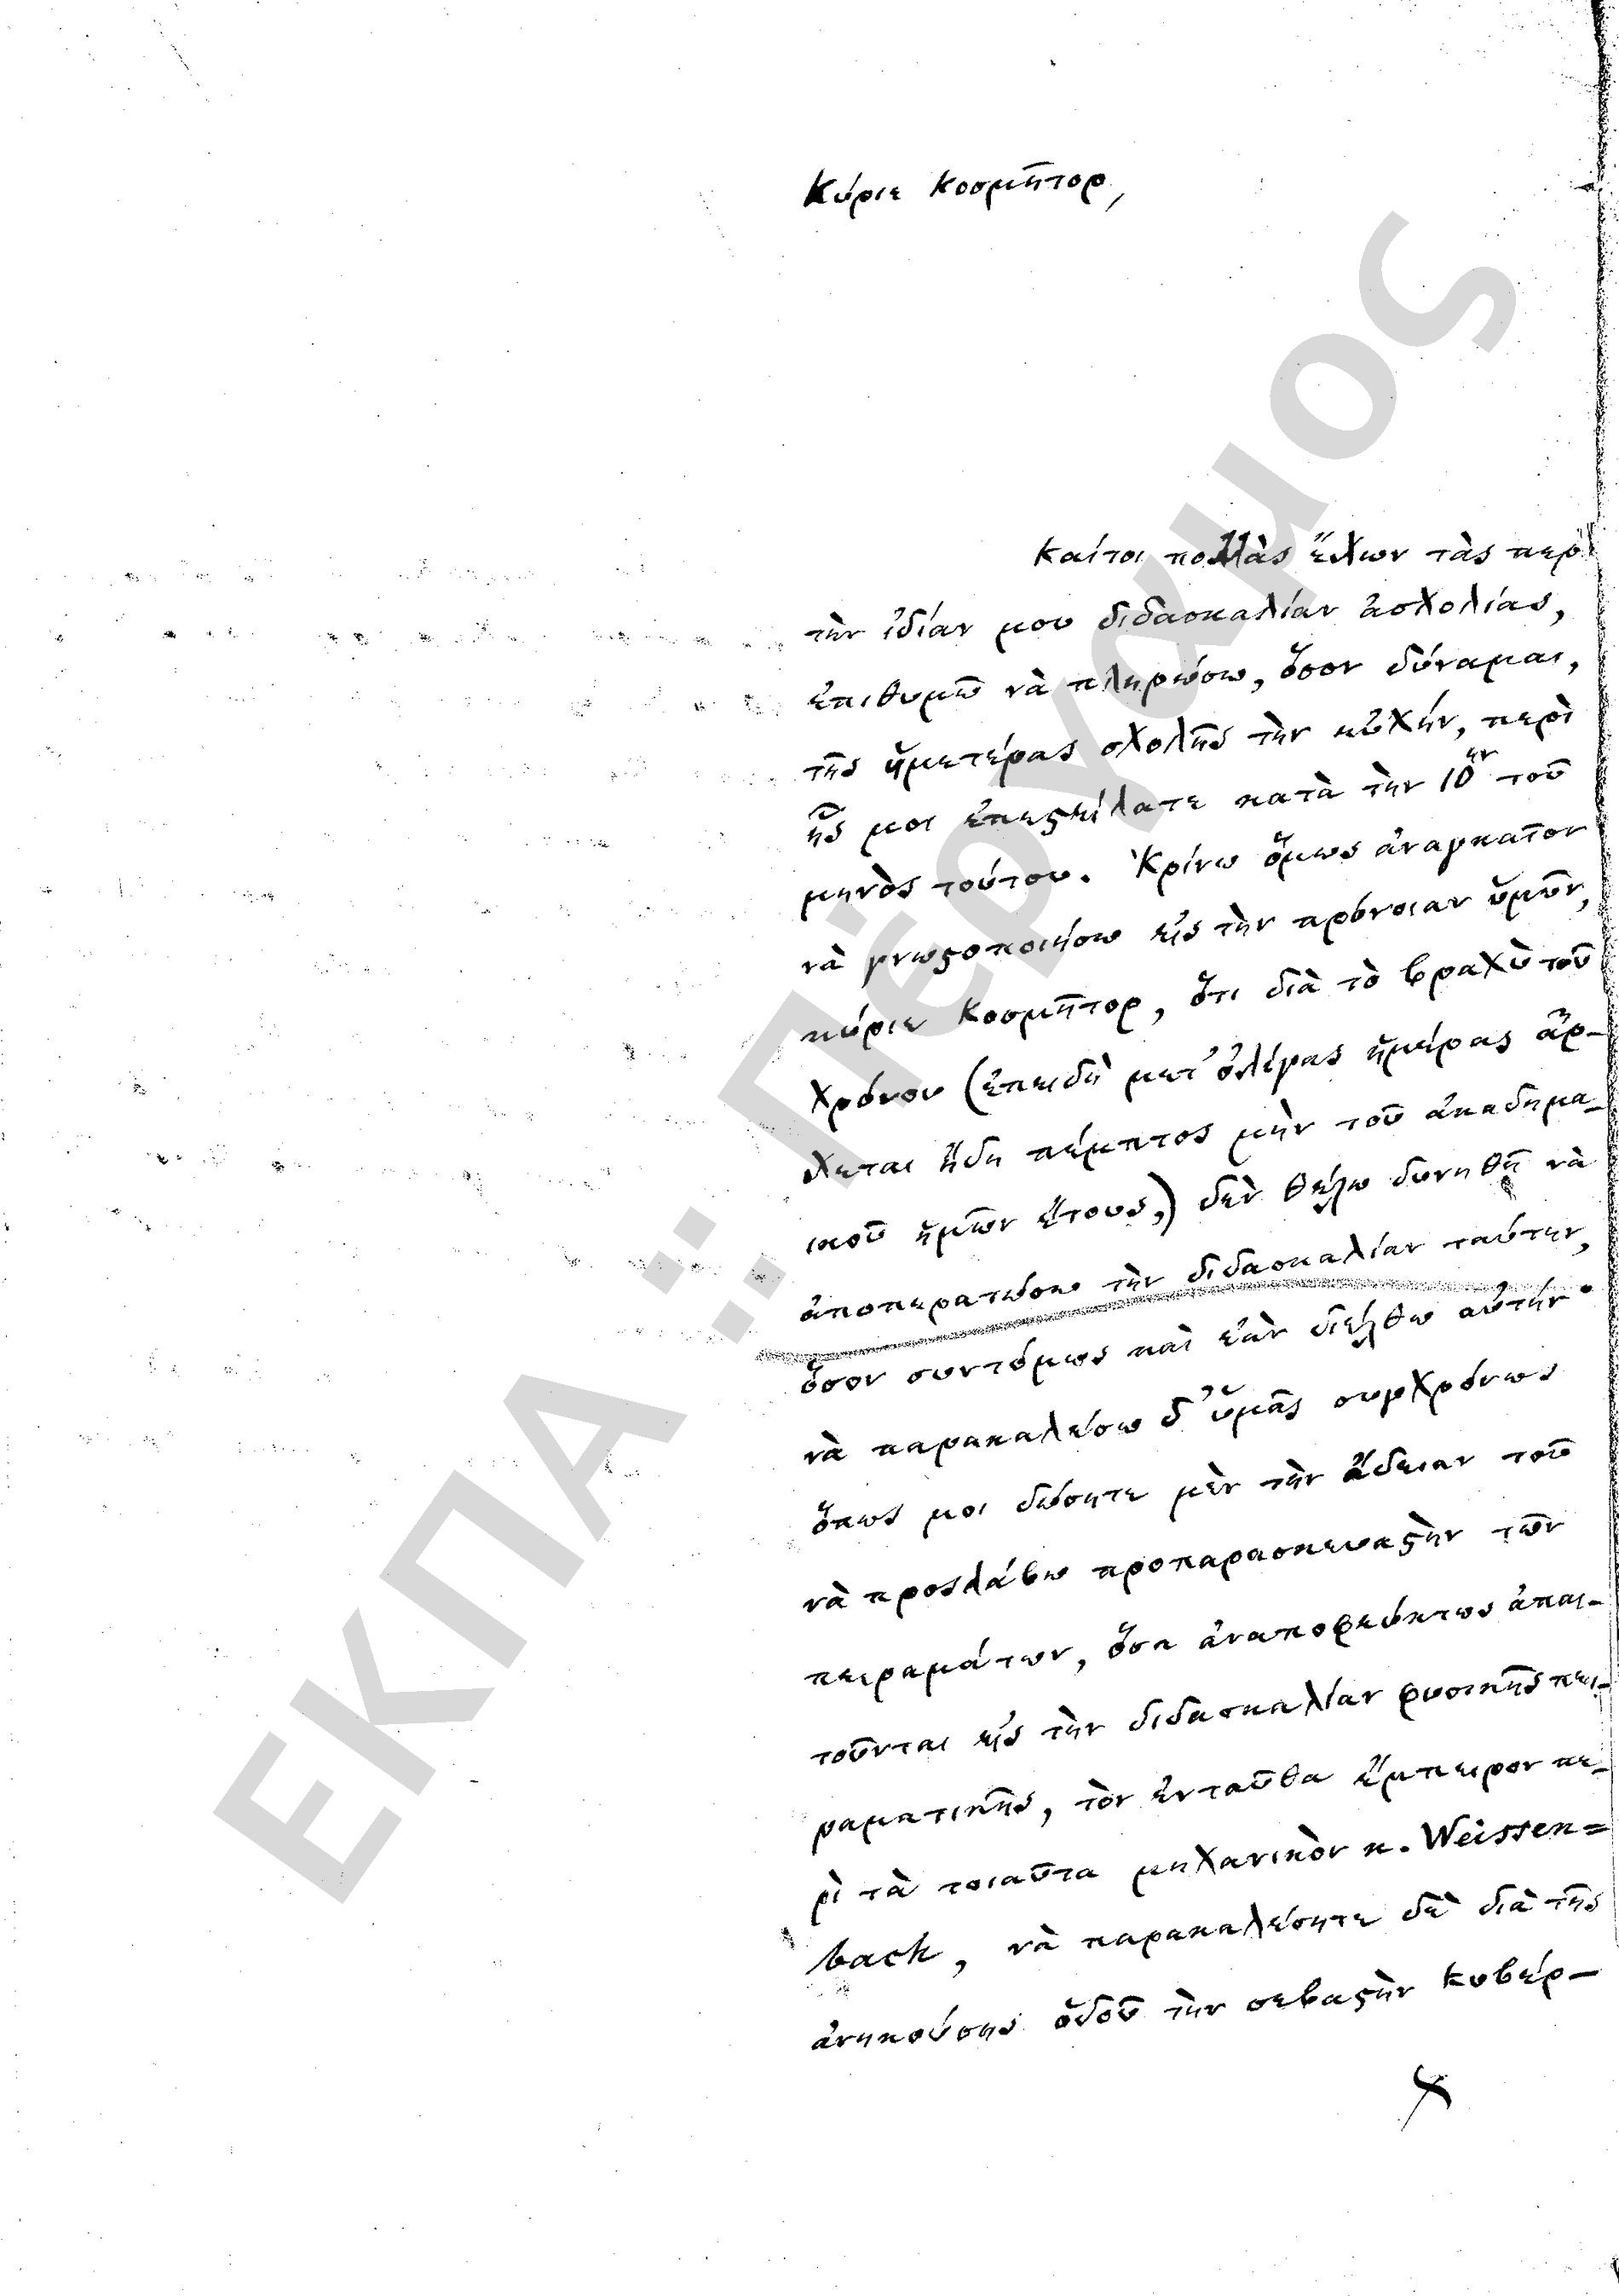 Κύριε Κοσμῆτορ,
Καίτοι πολλὰς ἔχων τὰς περὶ
τὴν ἰδίαν μου διδασκαλίαν ἀσχολίας,
ἐπιθυμῶ νὰ πληρώσω, ὅσον δύναμαι,
τῆς ἡμετέρας σχολῆς τὴν εὐχήν, περὶ
ἧς μοι ἐπεςείλατε κατὰ τὴν 10ην τοῦ
μηνὸς τούτου. Κρίνω ὅμως ἀναγκαῖον
νὰ γνωςοποιήσω εἰς τὴν πρόνοιαν ὑμῶν,
κύριε Κοσμῆτορ, ὅτι διὰ τὸ βραχὺ τοῦ
χρόνου (ἐπειδὴ μετ' ὀλίγας ἡμέρας ἄρ-
χεται ἤδη πέμπτος μὴν τοῦ ἀκαδημα-
ικοῦ ἡμῶν ἔτους,) δὲν θέλω δυνηθῆ νὰ
ἀποπερατώσω τὴν διδασκαλίαν ταύτην,
ὅσον συντόμως καὶ ἐὰν διέλθω αὐτήν·
νὰ παρακαλέσω δ' ὑμᾶς συγχρόνως
ὅπως μοι δώσητε μὲν τὴν ἄδειαν τοῦ
νὰ προςλάβω προπαρασκευαςὴν τῶν
πειραμάτων, ὅσα ἀναποφεύκτως ἀπαι-
τοῦνται εἰς τὴν διδασκαλίαν φυσικῆς πει-
ραματικῆς, τὸν ἐνταῦθα ἔμπειρον πε-
ρὶ τὰ τοιαῦτα μηχανικὸν κ. Weissen=
bach, νὰ παρακαλέσητε δὲ διὰ τῆς
ἀνηκούσης ὁδοῦ τὴν σεβαςὴν Κυβέρ-
ΕΚΠΑ :: Πέργαμος